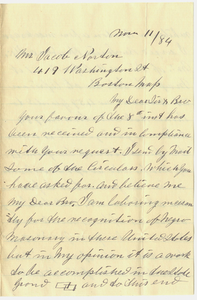 Nov 11/84
Mr Jacob Norton
419 Washington St
Boston Mass
My Dear Sir & Bro
Your favour of the 8th inst has
been received and in compliance
with your request. I send by mail
some of the circulars. Which you
have asked for. And believe me
My Dear Bro. I am laboring
for the recognition of Negro
Masonry in these United States
but in my opinion it is a work
to be accomplished in
and to this end